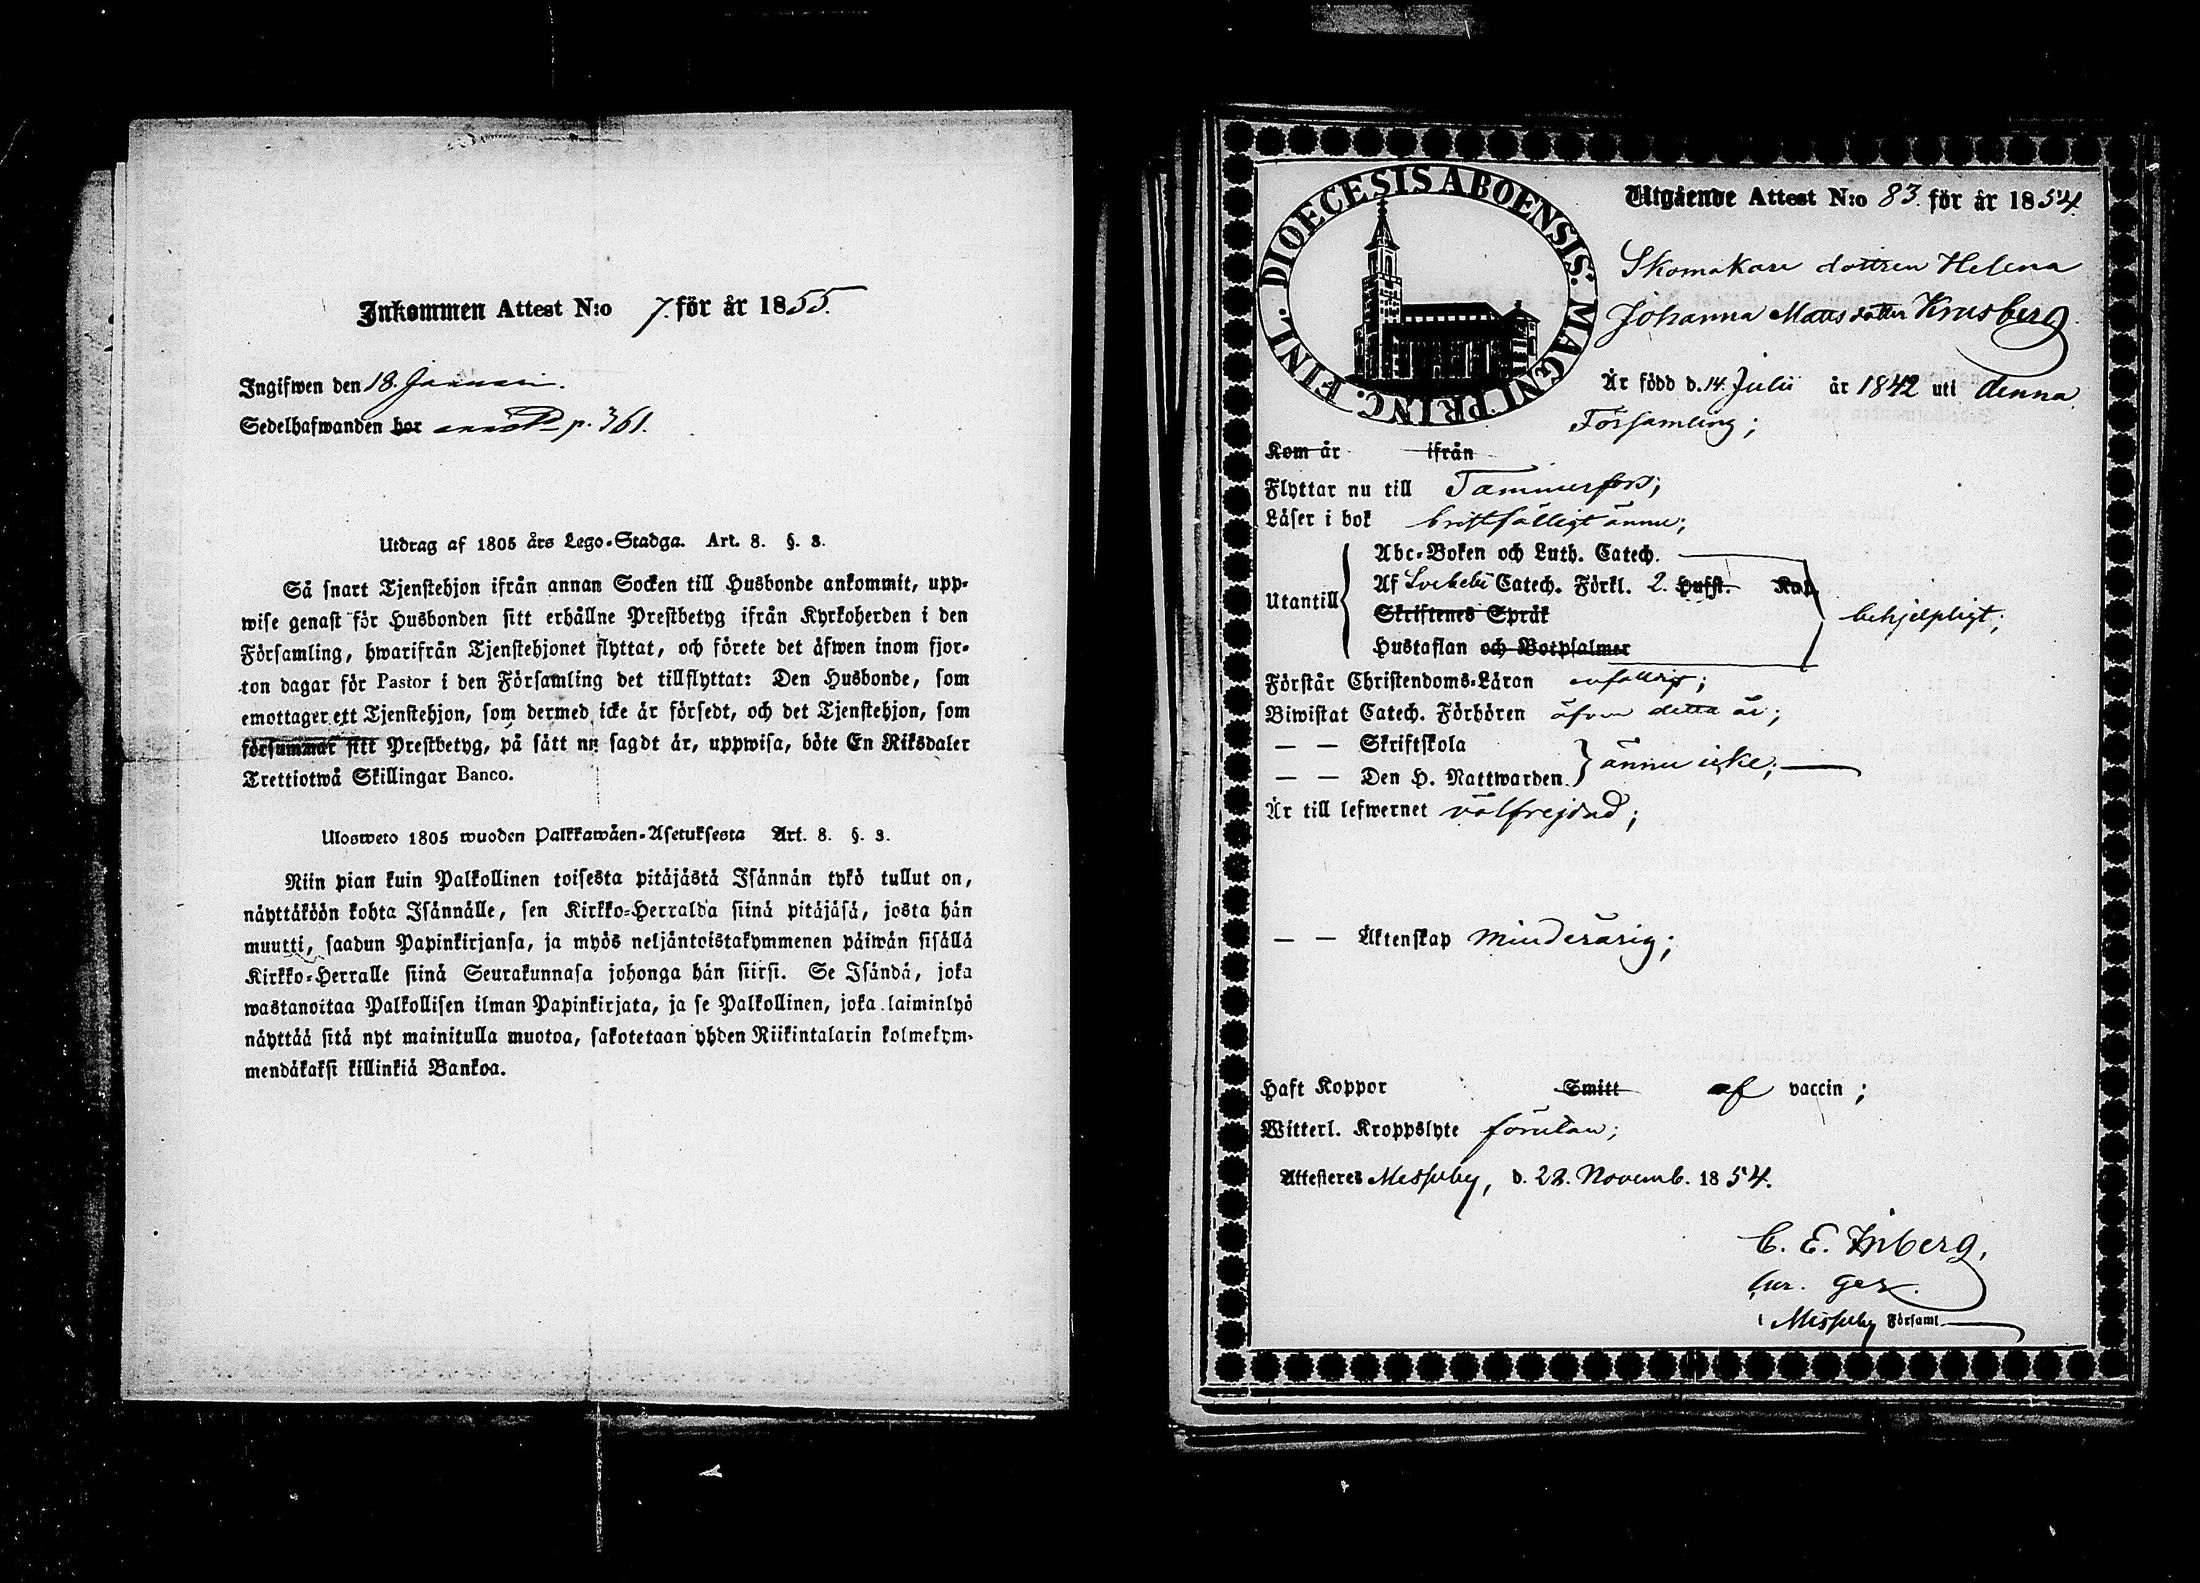 Inkommen Attest N:o 7. för år 1855.
Ingifwen den 18. Januari.
Sedelhafwanden bor p. 361.
Utdrag af 1805 års Lego-Stadga. Art. 8. §. 3.
Så snart Tjenstehjon ifrån annan Socken till Husbonde ankommit, upp-
wise genast för Husbonden sitt erhållne Prestbetyg ifrån Kyrkoherden i den
Församling, hwarifrån Tjenstehjonet flyttat, och förete det äfwen inom fjor-
ton dagar för Pastor i den Församling det tillflyttat: Den Husbonde, som
emottager ett Tjenstehjon, som dermed icke är försedt, och det Tjenstehjon, som
försummar sitt Prestbetyg, på sätt nu sagdt är, uppwisa, böte En Riksdaler
Trettiotwå Skillingar Banco.
Ulosweto 1805 wuoden Palkkawäen-Asetuksesta Art. 8. §. 3.
Niin pian kuin Palkollinen toisesta pitäjästä Isännän tykö tullut on,
näyttäköön kohta Isännälle, sen Kirkko-Herralda siinä pitäjäsä, josta hän
muutti, saadun Papinkirjansa, ja myös neljäntoistakymmenen päiwän sisällä
Kirkko-Herralle siinä Seurakunnasa johonga hän siirsi. Se Isändä, joka
wastanoitaa Palkollisen ilman Papinkirjata, ja se Palkollinen, joka laiminlyö
näyttää sitä nyt mainitulla muotoa, sakotetaan yhden Riikintalarin kolmekym-
mendäkaksi killinkiä Bankoa.
DIOECESIS ABOENSIS. MAGNI PRINC. FINL.
Utgående Attest N:o 83. för år 1854.
Skomakare dottren Helena
Johanna Matts dotter Krusberg
Är född d. 14. Julii år 1842 uti denna
Församling;
Kom år ifrån
Flyttar nu till Tammerfors;
Läser i bok bristfälligt ännu;
Utantill
Abc-Boken och Luth. Catech.
Af Svebelii Catech. Förkl. 2. Hufst. Kap.
Skriftenes Språk
Hustaflan och Botpsalmer
behjelpligt;
Förstår Christendoms-Läran enfaldigt;
Biwistat Catech. Förhören äfven detta år;
— — Skriftskola
— — Den H. Nattwarden
ännu icke;
Är till lefwernet välfrejdad;
— — Äktenskap Minderårig;
Haft Koppor Smitt af vaccin;
Witterl. Kroppslyte förutan;
Attesteras Messuby, d. 22. Novemb. 1854.
C. E. Inberg,
i Messuby Församl.